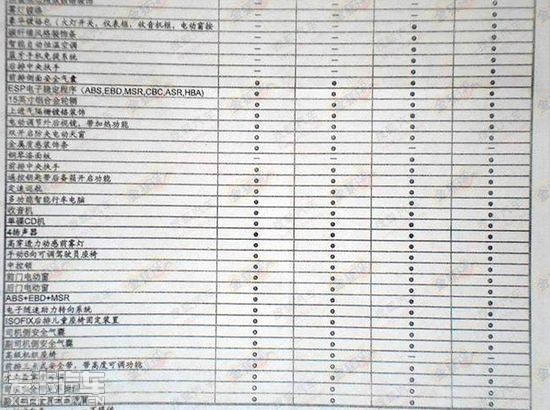 豪华镀铬包（大灯开关，仪表框，收音机框，电动窗按
碳纤风格装饰条
智能自动恒温空调
蓝牙手机免提系统
后排中央扶手
前排侧面安全气囊
ESP电子稳定程序（ABS,EBD,MSR,CBC,ASR,HBA）
15英寸铝合金轮辋
上进气隔栅镀铬装饰
电动调节外后视镜，带加热功能
双开启防夹电动天窗
金属质感装饰条
钢琴漆面板
前排中央扶手
遥控钥匙带后备箱开启功能
定速巡航
多功能智能行车电脑
收音机
单碟CD机
4扬声器
高穿透力动感前雾灯
手动6向可调驾驶员座椅
中控锁
前门电动窗
后门电动窗
ABS+EBD+MSR
电子随速助力转向系统
ISOFIX后排儿童座椅固定装置
司机侧安全气囊
副司机侧安全气囊
高级机织座椅
前排三点式安全带，带高度可调功能